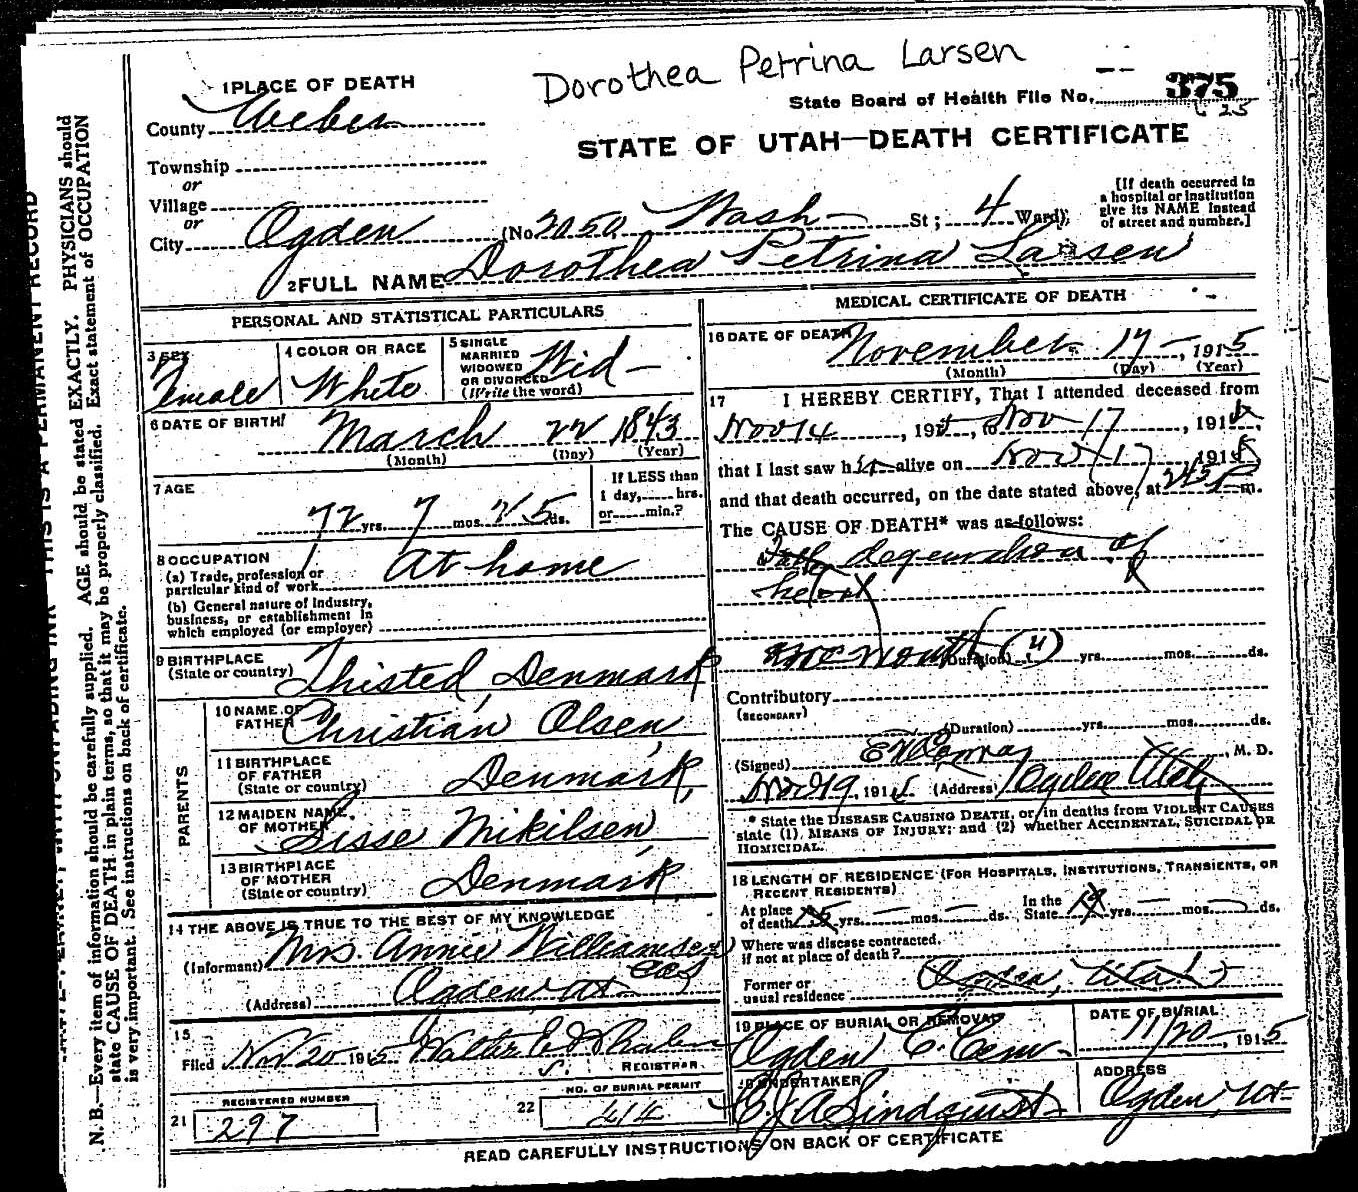 Dorothea Petrina Larsen
1 PLACE OF DEATH
County Weber
State Board of Health File No. 375
625
STATE OF UTAH—DEATH CERTIFICATE
Township
or
Village
or
City Ogden (No. 2050 Wash— St; 4 Ward);
[If death occurred in a hospital or institution give its NAME instead of street and number.]
2 FULL NAME Dorothea Petrina Larsen
PERSONAL AND STATISTICAL PARTICULARS
3 SEX Female
4 COLOR OR RACE White
5 SINGLE MARRIED WIDOWED OR DIVORCED (Write the word) Wid—
6 DATE OF BIRTH March 22 1843
(Month) (Day) (Year)
7 AGE 72 yrs. 7 mos. 25 ds.
If LESS than 1 day, hrs. or min.?
8 OCCUPATION
(a) Trade, profession or particular kind of work At home
(b) General nature of Industry, business, or establishment in which employed (or employer)
9 BIRTHPLACE (State or country) Thisted, Denmark
PARENTS
10 NAME OF FATHER Christian Olsen
11 BIRTHPLACE OF FATHER (State or country) Denmark,
12 MAIDEN NAME OF MOTHER Sisse Mikilsen
13 BIRTHPLACE OF MOTHER (State or country) Denmark
14 THE ABOVE IS TRUE TO THE BEST OF MY KNOWLEDGE
(Informant) Mrs. Annie Williamsen
(Address) Ogden Ut
15 Filed Nov 20 1915 Walter E. Whalen
REGISTRAR
21 REGISTERED NUMBER 297
22 NO. OF BURIAL PERMIT 414
MEDICAL CERTIFICATE OF DEATH
16 DATE OF DEATH November 17—, 1915
(Month) (Day) (Year)
17 I HEREBY CERTIFY, That I attended deceased from
Nov 14, 1915, to Nov 17, 1915,
that I last saw her alive on Nov 17, 1915
and that death occurred, on the date stated above, at m.
The CAUSE OF DEATH* was as follows:
Fatty degeneration of
heart
(Duration) yrs. mos. ds.
Contributory
(SECONDARY)
(Duration) yrs. mos. ds.
(Signed) M. D.
Nov 19, 1915. (Address) Ogden Utah
* State the DISEASE CAUSING DEATH, or, in deaths from VIOLENT CAUSES state (1) MEANS OF INJURY; and (2) whether ACCIDENTAL, SUICIDAL OR HOMICIDAL.
18 LENGTH OF RESIDENCE (FOR HOSPITALS, INSTITUTIONS, TRANSIENTS, OR RECENT RESIDENTS)
At place of death yrs. — mos. — ds. In the State yrs. — mos. — ds.
Where was disease contracted, if not at place of death?
Former or usual residence Ogden, Utah
19 PLACE OF BURIAL OR REMOVAL Ogden C. Cem—
DATE OF BURIAL 11/20—, 1915
20 UNDERTAKER C. J. A. Lindquist
ADDRESS Ogden, Ut—
READ CAREFULLY INSTRUCTIONS ON BACK OF CERTIFICATE
THIS IS A PERMANENT RECORD
N. B.—Every item of information should be carefully supplied. AGE should be stated EXACTLY. PHYSICIANS should
state CAUSE OF DEATH in plain terms, so that it may be properly classified. Exact statement of OCCUPATION
is very important. See instructions on back of certificate.